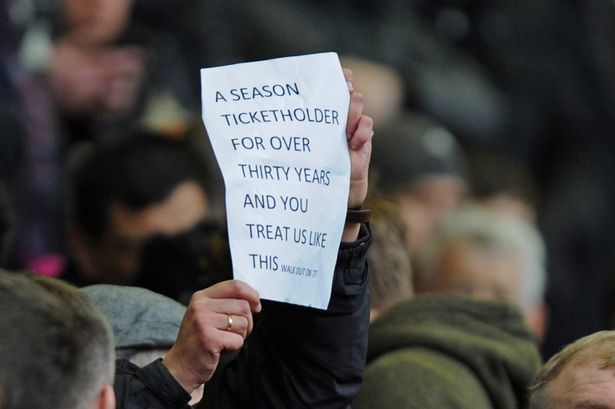 A SEASON
TICKETHOLDER
FOR OVER
THIRTY YEARS
AND YOU
TREAT US LIKE
THIS WALK OUT ON 77